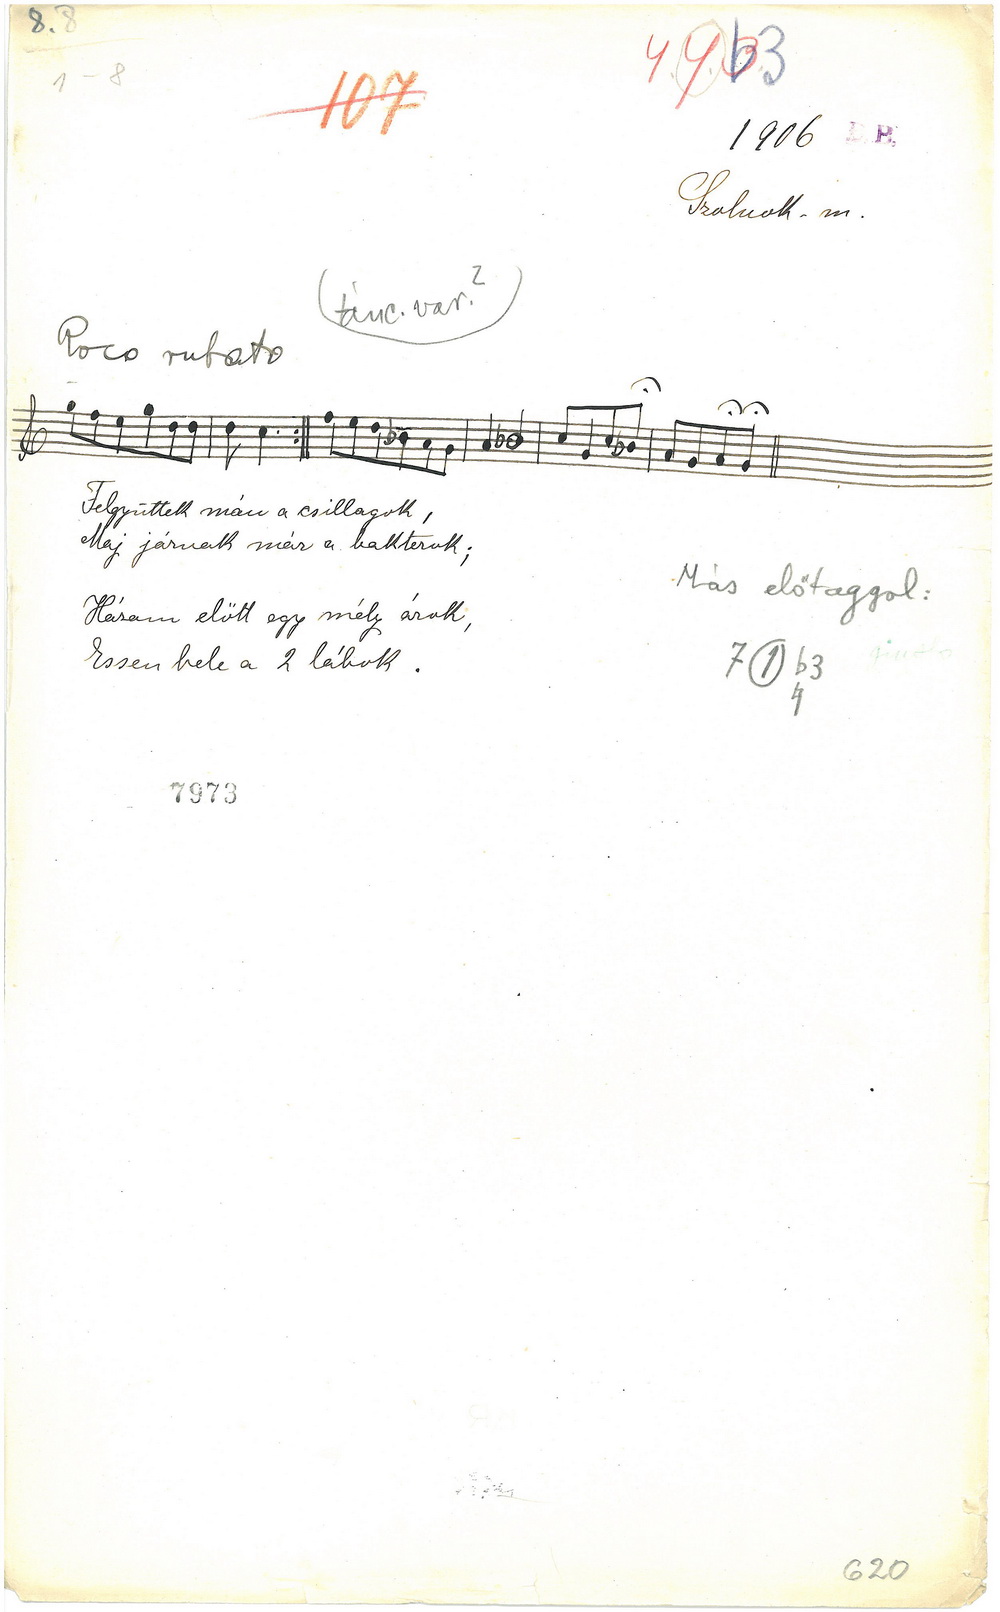 8. 8
1 - 8
107
4. 4. b3
1906 B.B.
Szolnok. m.
(tánc. var.?)
Poco rubato
Felgyüttek mán a csillagok,
Maj járnak már a bakterok;
Házam előtt egy mély árok,
Essen bele a 2 lábok.
Más előtaggal:
7 1 b3
4
7973
620